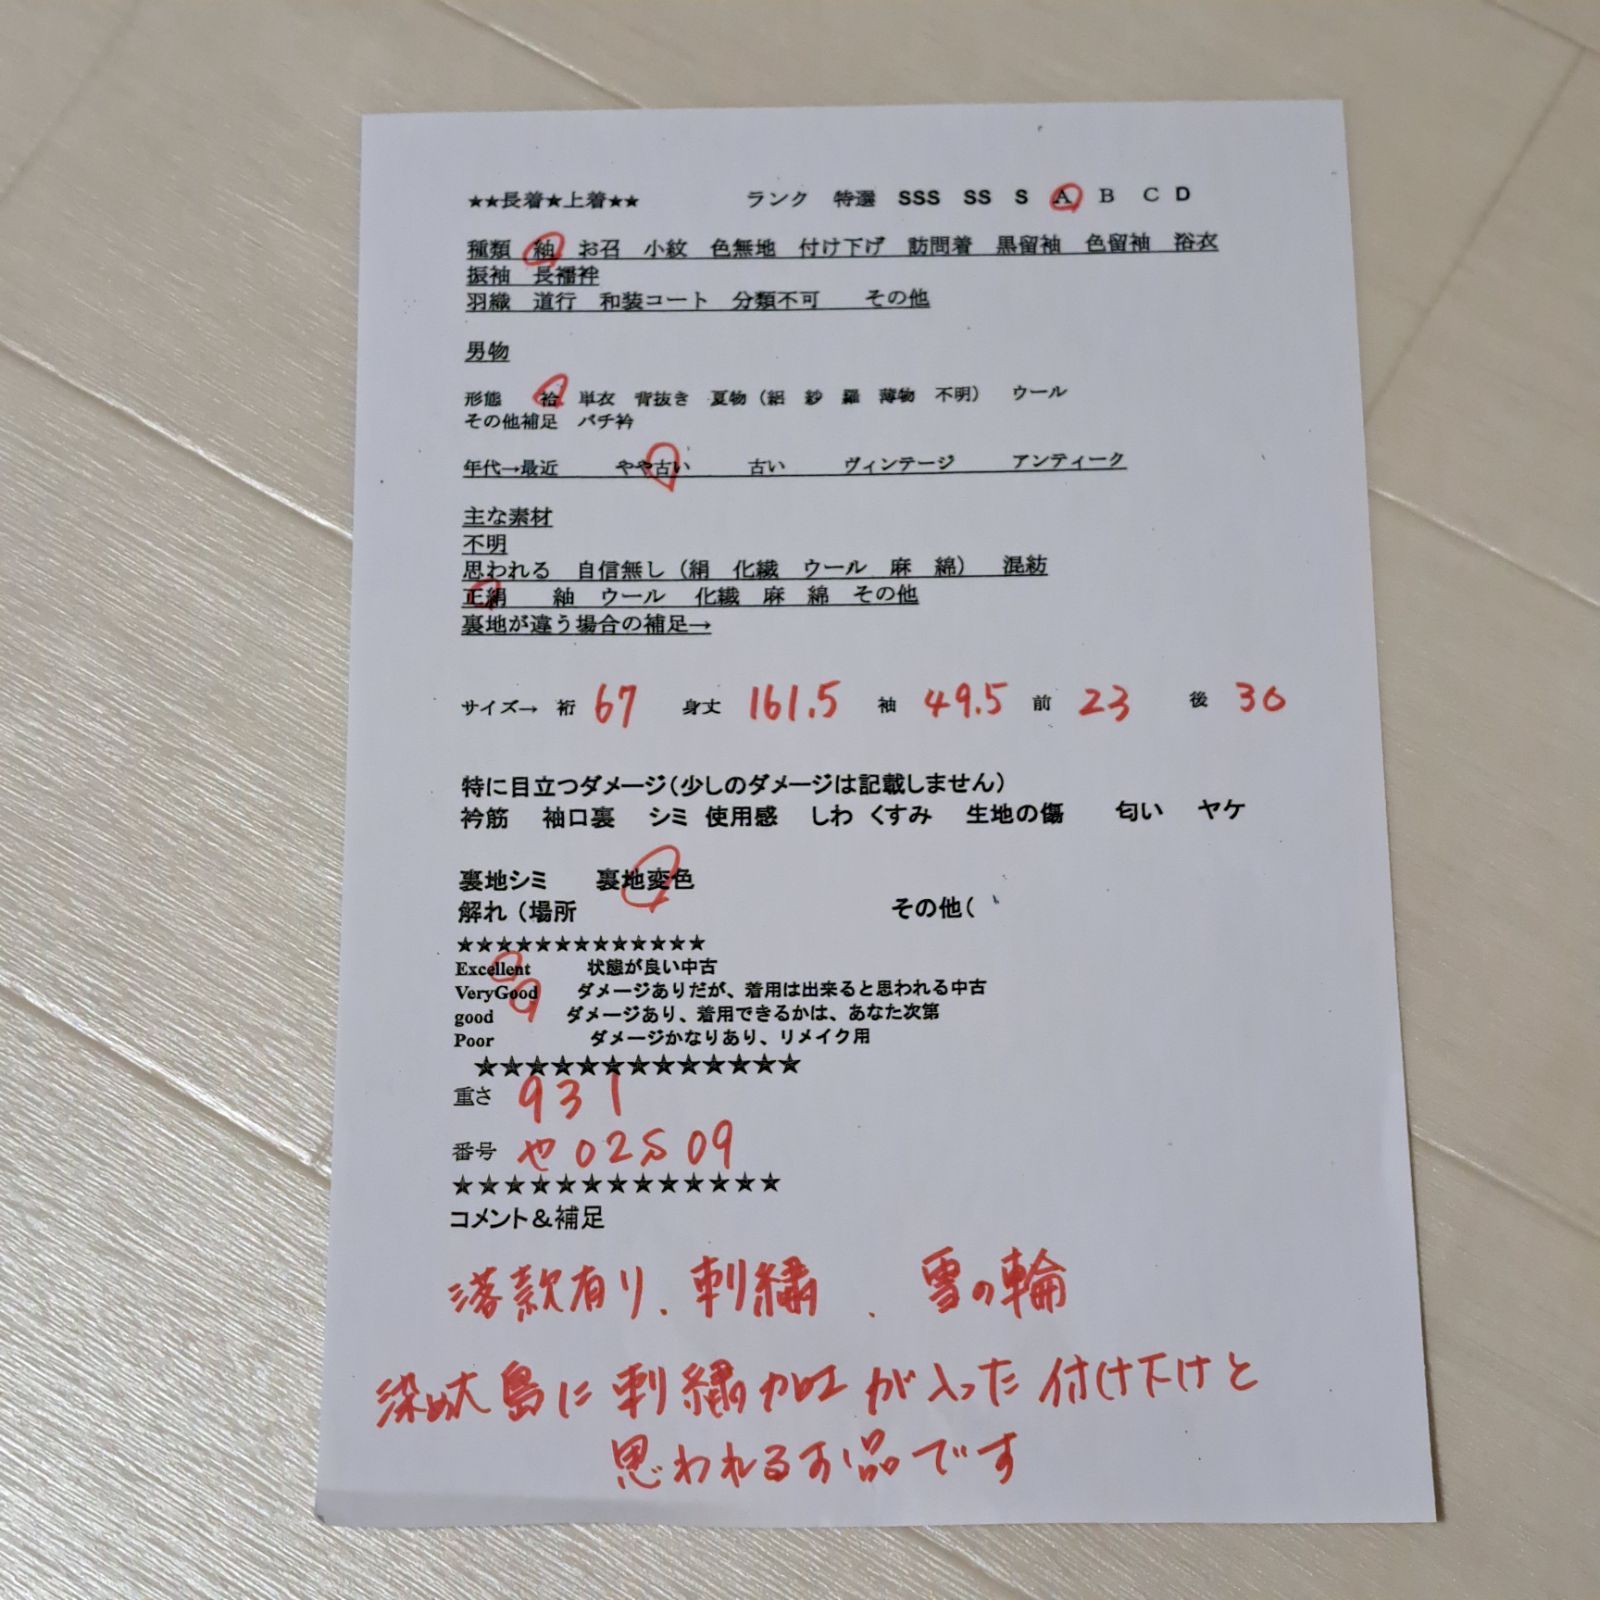 ★★長着★上着★★　ランク　特選　SSS　SS　S　A　B　C　D
種類　紬　お召　小紋　色無地　付け下げ　訪問着　黒留袖　色留袖　浴衣
振袖　長襦袢
羽織　道行　和装コート　分類不可　その他
男物
形態　袷　単衣　背抜き　夏物（絽　紗　羅　薄物　不明）　ウール
その他補足　バチ衿
年代→最近　やや古い　古い　ヴィンテージ　アンティーク
主な素材
不明
思われる　自信無し（絹　化繊　ウール　麻　綿）　混紡
正絹　紬　ウール　化繊　麻　綿　その他
裏地が違う場合の補足→
サイズ→　裄　67　身丈　161.5　袖　49.5　前　23　後　30
特に目立つダメージ（少しのダメージは記載しません）
衿筋　袖口裏　シミ　使用感　しわ　くすみ　生地の傷　匂い　ヤケ
裏地シミ　裏地変色
解れ（場所　その他（
★★★★★★★★★★★★★
Excellent　状態が良い中古
VeryGood　ダメージありだが、着用は出来ると思われる中古
good　ダメージあり、着用できるかは、あなた次第
Poor　ダメージかなりあり、リメイク用
★★★★★★★★★★★★★
重さ　931
番号　や02S09
★★★★★★★★★★★★★
コメント＆補足
落款有り、刺繍、雪の輪
染め大島に刺繍加工が入った付け下げと
思われるお品です